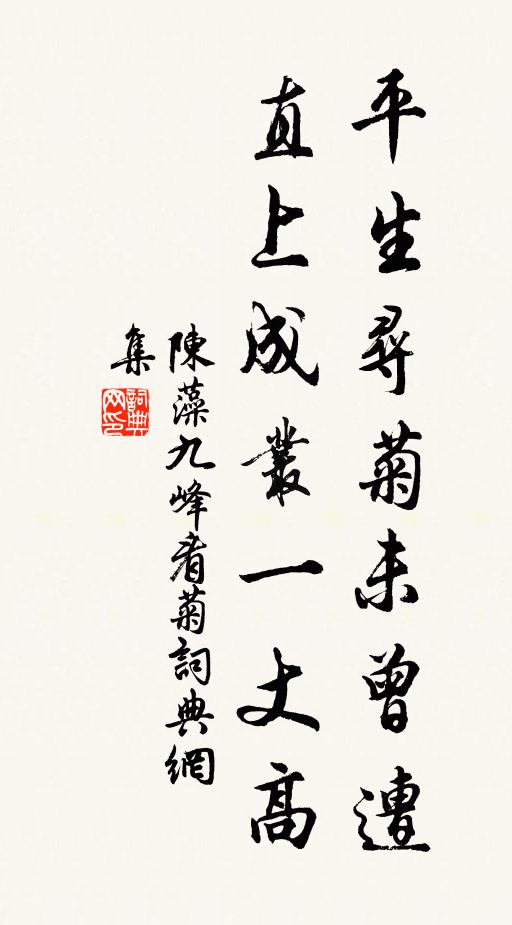 平生尋菊未曾遭
直上成叢一丈高
陳藻九峰看菊詞典網
集
詞典網印